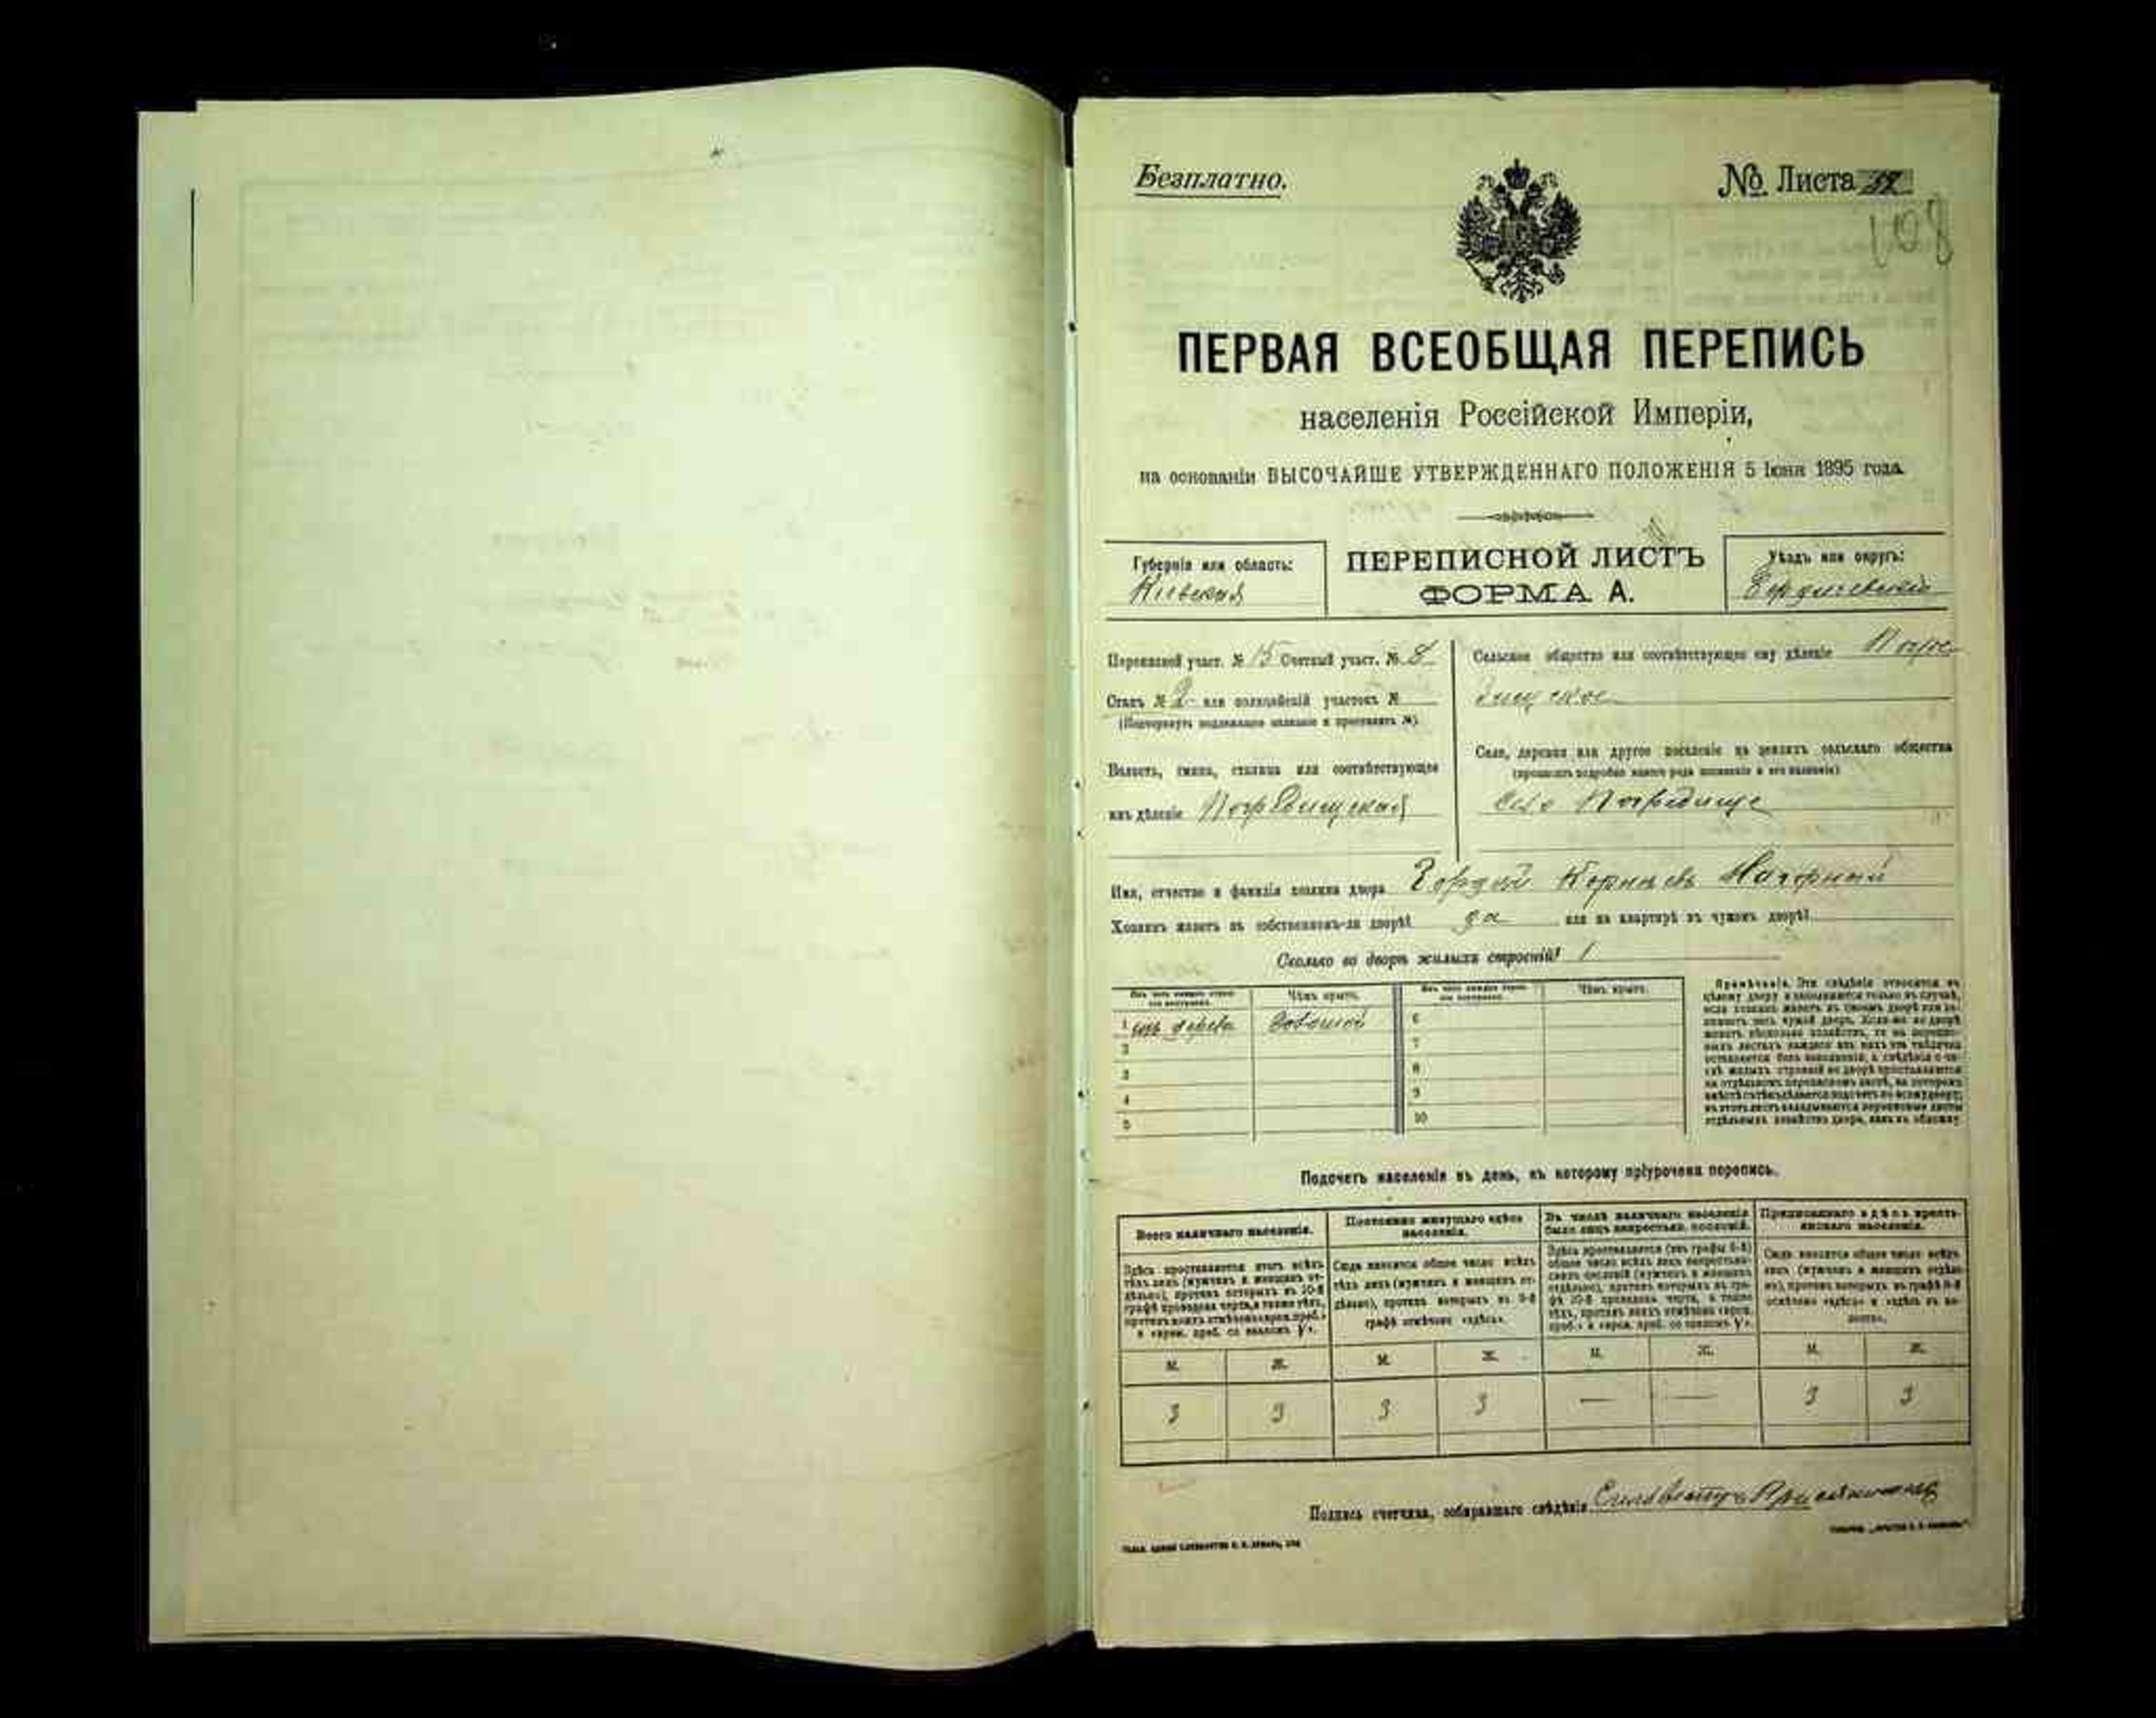 Безплатно.
№ Листа
128
ПЕРВАЯ ВСЕОБЩАЯ ПЕРЕПИСЬ
населенія Россійской Имперіи,
на основаніи ВЫСОЧАЙШЕ УТВЕРЖДЕННАГО ПОЛОЖЕНІЯ 5 Іюня 1895 года.
Губернія или область:
Кіевская
ПЕРЕПИСНОЙ ЛИСТЪ
ФОРМА А.
Уѣздъ или округъ:
Бердичевскій
Переписной участ. № 15 Счетный участ. № 8
Станъ № 2 или полицейскій участокъ №
(Подчеркнуть подлежащее названіе и проставить №)
Волость, гмина, станица или соотвѣтствующее
имъ дѣленіе Погребищенская
Сельское общество или соотвѣтствующее ему дѣленіе Погре-
бищское
Село, деревня или другое поселеніе въ предѣлахъ сельскаго общества
(прописать подробно какого рода поселеніе и его названіе)
Село Погребище
Имя, отчество и фамилія хозяина двора Гордѣй Корнѣевъ Нагорный
Хозяинъ живетъ въ собственномъ-ли дворѣ? да или на квартирѣ въ чужомъ дворѣ?
Сколько во дворѣ жилыхъ строеній? 1
Изъ чего каждое строеніе построено.
Чѣмъ крыто.
Изъ чего каждое строеніе построено.
Чѣмъ крыто.
1 изъ дерева соломой 6
2 7
3 8
4 9
5 10
Примѣчаніе. Эти свѣдѣнія относятся къ
цѣлому двору и заполняются только въ случаѣ,
если хозяинъ живетъ въ своемъ дворѣ или за-
нимаетъ весь чужой дворъ. Если-же во дворѣ
живетъ нѣсколько хозяйствъ, то на перепис-
ныхъ листахъ каждаго изъ нихъ эта табличка
оставляется безъ заполненія, а свѣдѣнія о чи-
слѣ жилыхъ строеній во дворѣ проставляются
на отдѣльномъ переписномъ листѣ, на которомъ
вмѣстѣ съ тѣмъ дѣлается подсчетъ по всему двору;
въ этотъ листъ вкладываются переписные листы
отдѣльныхъ хозяйствъ двора, какъ въ обложку.
Подсчетъ населенія въ день, къ которому пріурочена перепись.
Всего наличнаго населенія.
Постоянно живущаго здѣсь
населенія.
Въ числѣ наличнаго населенія
было лицъ некрестьян. сословій.
Приписаннаго здѣсь кресть-
янскаго населенія.
Здѣсь проставляется итогъ всѣхъ
тѣхъ лицъ (мужчинъ и женщинъ от-
дѣльно), противъ которыхъ въ 10-й
графѣ проведена черта, а также тѣхъ,
противъ коихъ отмѣчено «врем. преб.»
и «врем. преб. со знакомъ V».
Сюда вносится общее число всѣхъ
тѣхъ лицъ (мужчинъ и женщинъ от-
дѣльно), противъ которыхъ въ 9-й
графѣ отмѣчено «здѣсь».
Сюда вносится общее число всѣхъ
лицъ (мужчинъ и женщинъ отдѣль-
но), противъ которыхъ въ графѣ 8-й
отмѣчено «здѣсь» и «здѣсь въ во-
лости».
М. Ж. М. Ж. М. Ж. М. Ж.
3 3 3 3 — — 3 3
Подпись счетчика, собиравшаго свѣдѣнія